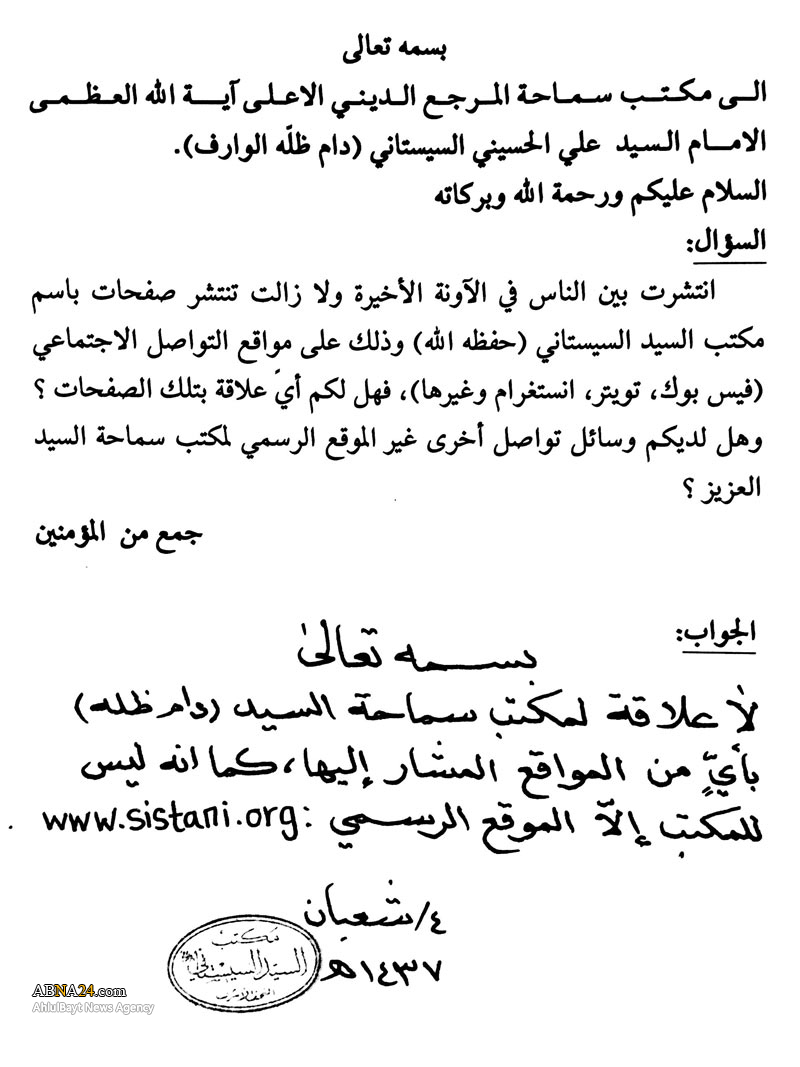 بسمه تعالى
الى مكتب سماحة المرجع الديني الاعلى آية الله العظمى
الامام السيد علي الحسيني السيستاني (دام ظلّه الوارف).
السلام عليكم ورحمة الله وبركاته
السؤال:
انتشرت بين الناس في الآونة الأخيرة ولا زالت تنتشر صفحات باسم
مكتب السيد السيستاني (حفظه الله) وذلك على مواقع التواصل الاجتماعي
(فيس بوك، تويتر، انستغرام وغيرها)، فهل لكم أيّ علاقة بتلك الصفحات ؟
وهل لديكم وسائل تواصل أخرى غير الموقع الرسمي لمكتب سماحة السيد
العزيز ؟
جمع من المؤمنين
الجواب:
بسمه تعالى
لا علاقة لمكتب سماحة السيد (دام ظله)
بأيٍّ من المواقع المشار إليها، كما انه ليس
للمكتب إلاّ الموقع الرسمي: www.sistani.org
٤/شعبان
١٤٣٧هـ
مكتب
السيد السيستاني
النجف الاشرف
ABNA24.com
AhlulBayt News Agency